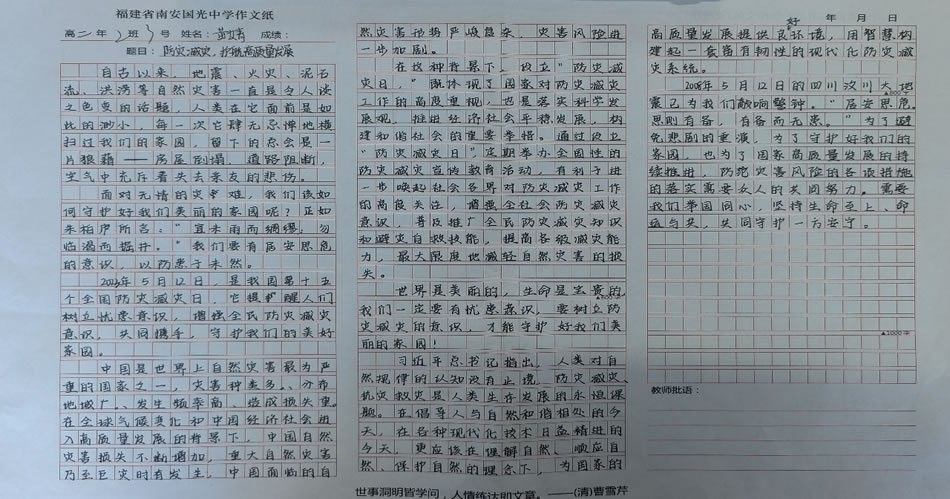 福建省南安国光中学作文纸
高二年2班3号 姓名: 成绩:
题目: 防灾减灾,护航高质量发展
自古以来,地震、火灾、泥石
流、洪涝等自然灾害一直是令人谈
之色变的话题,人类在它面前是如
此的渺小,每一次它肆无忌惮地横
扫过我们的家园,留下的总会是一
片狼藉——房屋倒塌,道路阻断,
空气中充斥着失去亲友的悲伤。
面对无情的灾难,我们该如
何守护好我们美丽的家园呢?正如
朱柏庐所言:"宜未雨而绸缪,勿
临渴而掘井。"我们要有居安思危
的意识,以防患于未然。
2023年5月12日,是我国第十五
个全国防灾减灾日,它提醒人们
树立忧患意识,增强全民防灾减灾
意识,共同携手,守护我们的美好
家园。
中国是世界上自然灾害最为严
重的国家之一,灾害种类多、分布
地域广、发生频率高、造成损失重。
在全球气候变化和中国经济社会进
入高质量发展的背景下,中国自然
灾害损失不断增加,重大自然灾害
乃至巨灾时有发生,中国面临的自
然灾害形势严峻复杂,灾害风险进
一步加剧。
在这种背景下,设立"防灾减
灾日",既体现了国家对防灾减灾
工作的高度重视,也是落实科学发
展观,推进经济社会平稳发展,构
建和谐社会的重要举措。通过设立
"防灾减灾日",定期举办全国性的
防灾减灾宣传教育活动,有利于进
一步唤起社会各界对防灾减灾工作
的高度关注,增强全社会防灾减灾
意识,普及推广全民防灾减灾知识
和避灾自救技能,提高各级减灾能
力,最大限度地减轻自然灾害的损
失。
世界是美丽的,生命是宝贵的
▲600字
我们一定要有忧患意识,要树立防
灾减灾的意识,才能守护好我们美
丽的家园!
习近平总书记指出,人类对自
然规律的认知没有止境,防灾减灾、
抗灾救灾是人类生存发展的永恒课
题。在倡导人与自然和谐相处的今
天,在各种现代化技术日益精进的
今天,更应该在理解自然、顺应自
然、保护自然的理念下,为国家的
世事洞明皆学问,人情练达即文章。——(清)曹雪芹
好 年 月 日
高质量发展提供良环境,用智慧构
建起一套富有韧性的现代化防灾减
灾系统。
2008年5月12日的四川汶川大地
震已为我们敲响警钟。"居安思危,
思则有备,有备而无患。"为了避
免悲剧的重演,为了守护好我们的
家园,也为了国家高质量发展的持
续推进,防范灾害风险的各项措施
的落实需要众人的共同努力。需要
我们举国同心,坚持生命至上、命
运与共,共同守护一方安宁。
▲1000字
教师批语: